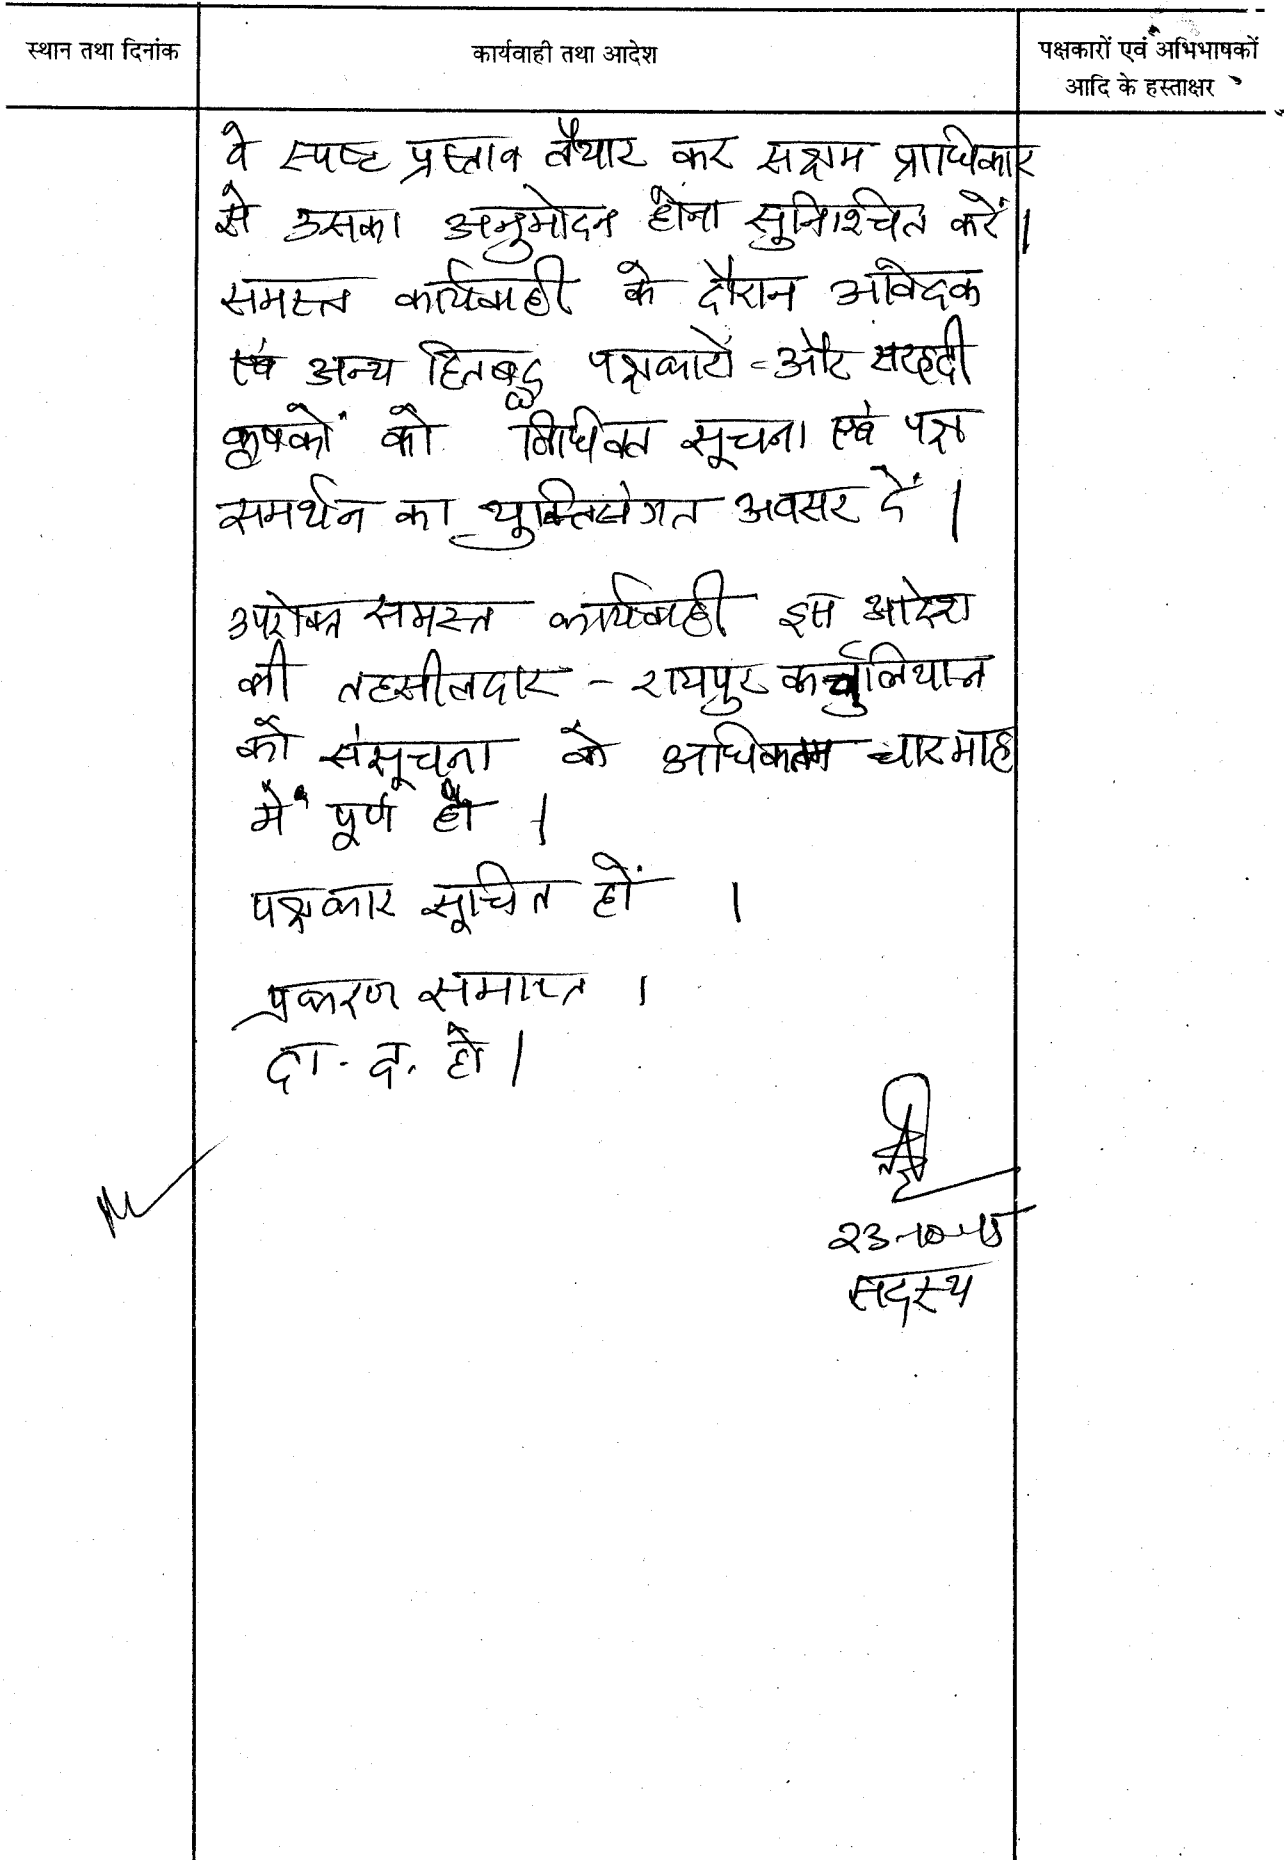 स्थान तथा दिनांक
कार्यवाही तथा आदेश
पक्षकारों एवं अभिभाषकों
आदि के हस्ताक्षर
वे स्पष्ट प्रस्ताव तैयार कर सक्षम प्राधिकार
से उसका अनुमोदन होना सुनिश्चित करें।
समस्त कार्यवाही के दौरान आवेदक
एवं अन्य हितबद्ध पक्षकारों - और सरहदी
कृषकों को विधिवत सूचना एवं पक्ष
समर्थन का युक्तिसंगत अवसर दें।
उपरोक्त समस्त कार्यवाही इस आदेश
की तहसीलदार - रायपुर कर्चुलियान
को संसूचना के अधिकतम चार माह
में पूर्ण हो ।
पक्षकार सूचित हों ।
प्रकरण समाप्त ।
दा. द. हो।
23-10-15
सदस्य